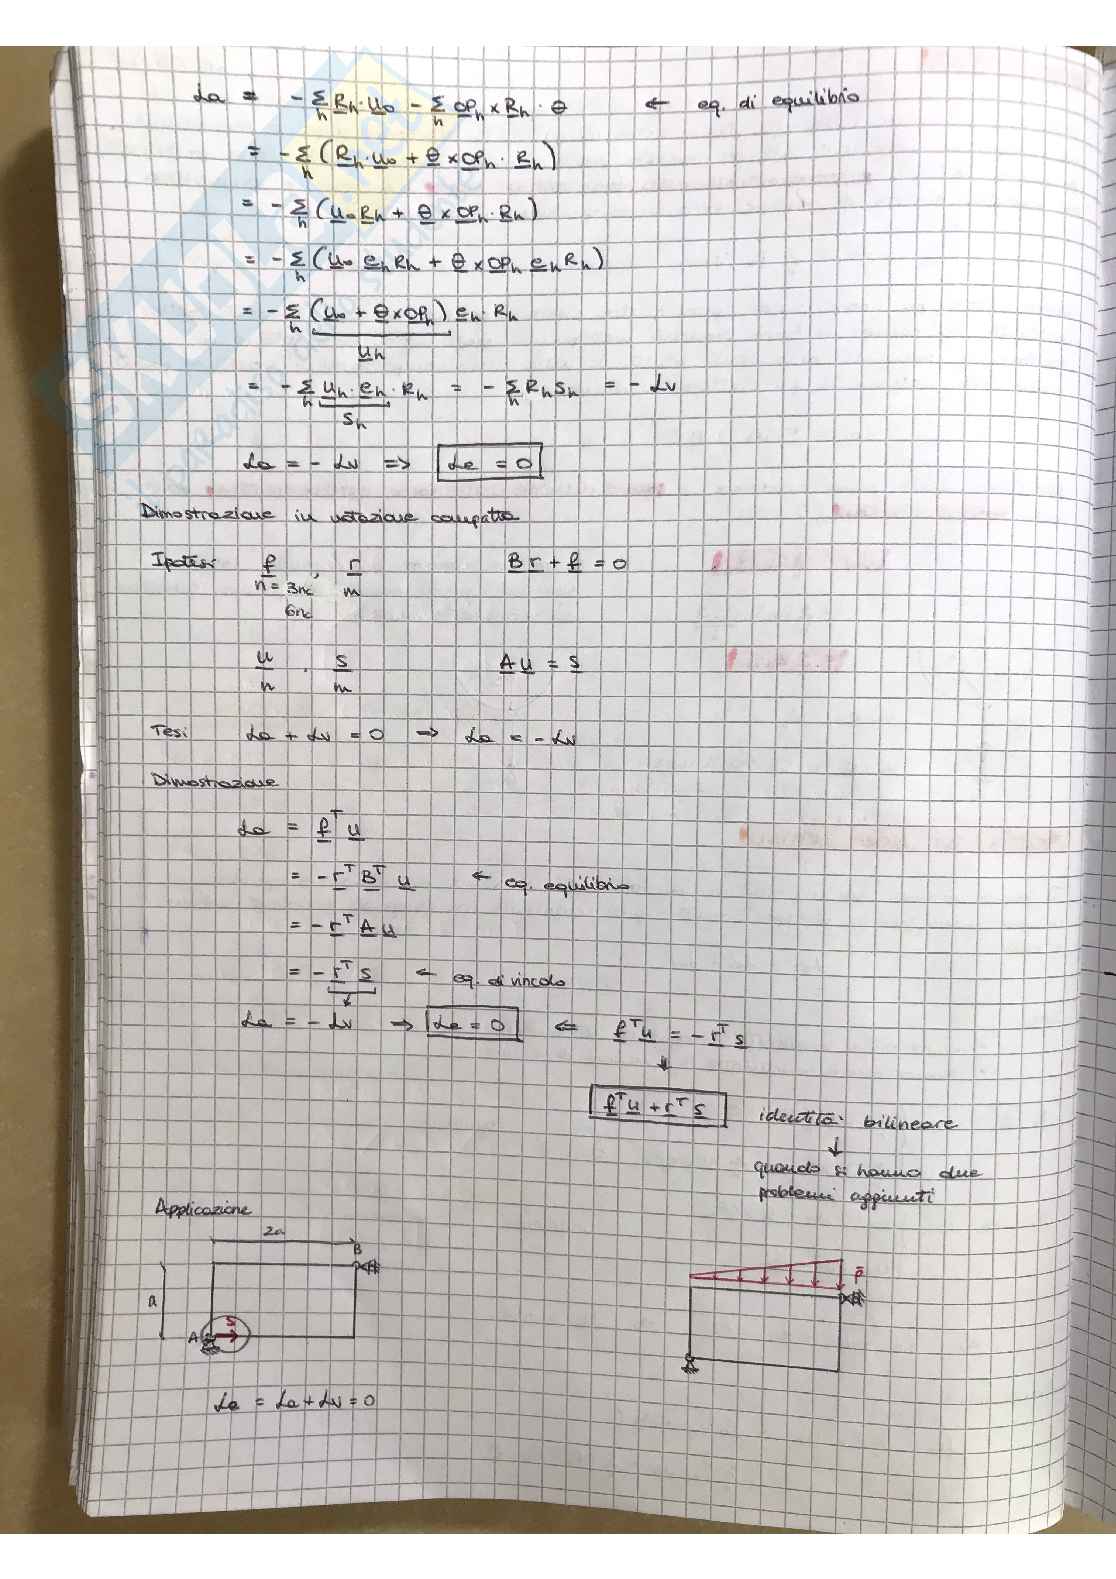 La = - Σ_h R_h · u_o - Σ_h OP_h × R_h · θ ← eq. di equilibrio
= - Σ_h (R_h · u_o + θ × OP_h · R_h)
= - Σ_h (u_o R_h + θ × OP_h · R_h)
= - Σ_h (u_o e_h R_h + θ × OP_h e_h R_h)
= - Σ_h (u_o + θ × OP_h) e_h · R_h
u_h
= - Σ_h u_h · e_h · R_h = - Σ_h R_h S_h = - Lv
S_h
La = - Lv => Le = 0
Dimostrazione in notazione compatta
Ipotesi f , r B r + f = 0
n = 3nc m
6nc
u . s A u = s
n m
Tesi La + Lv = 0 → La = - Lv
Dimostrazione
La = f^T u
= - r^T B^T u ← eq. equilibrio
= - r^T A u
= - r^T s ← eq. di vincolo
La = - Lv → Le = 0 ⇐ f^T u = - r^T s
f^T u + r^T s identità bilineare
quando si hanno due
problemi aggiunti
Applicazione
2a
B
a
S
A
p̄
Le = La + Lv = 0